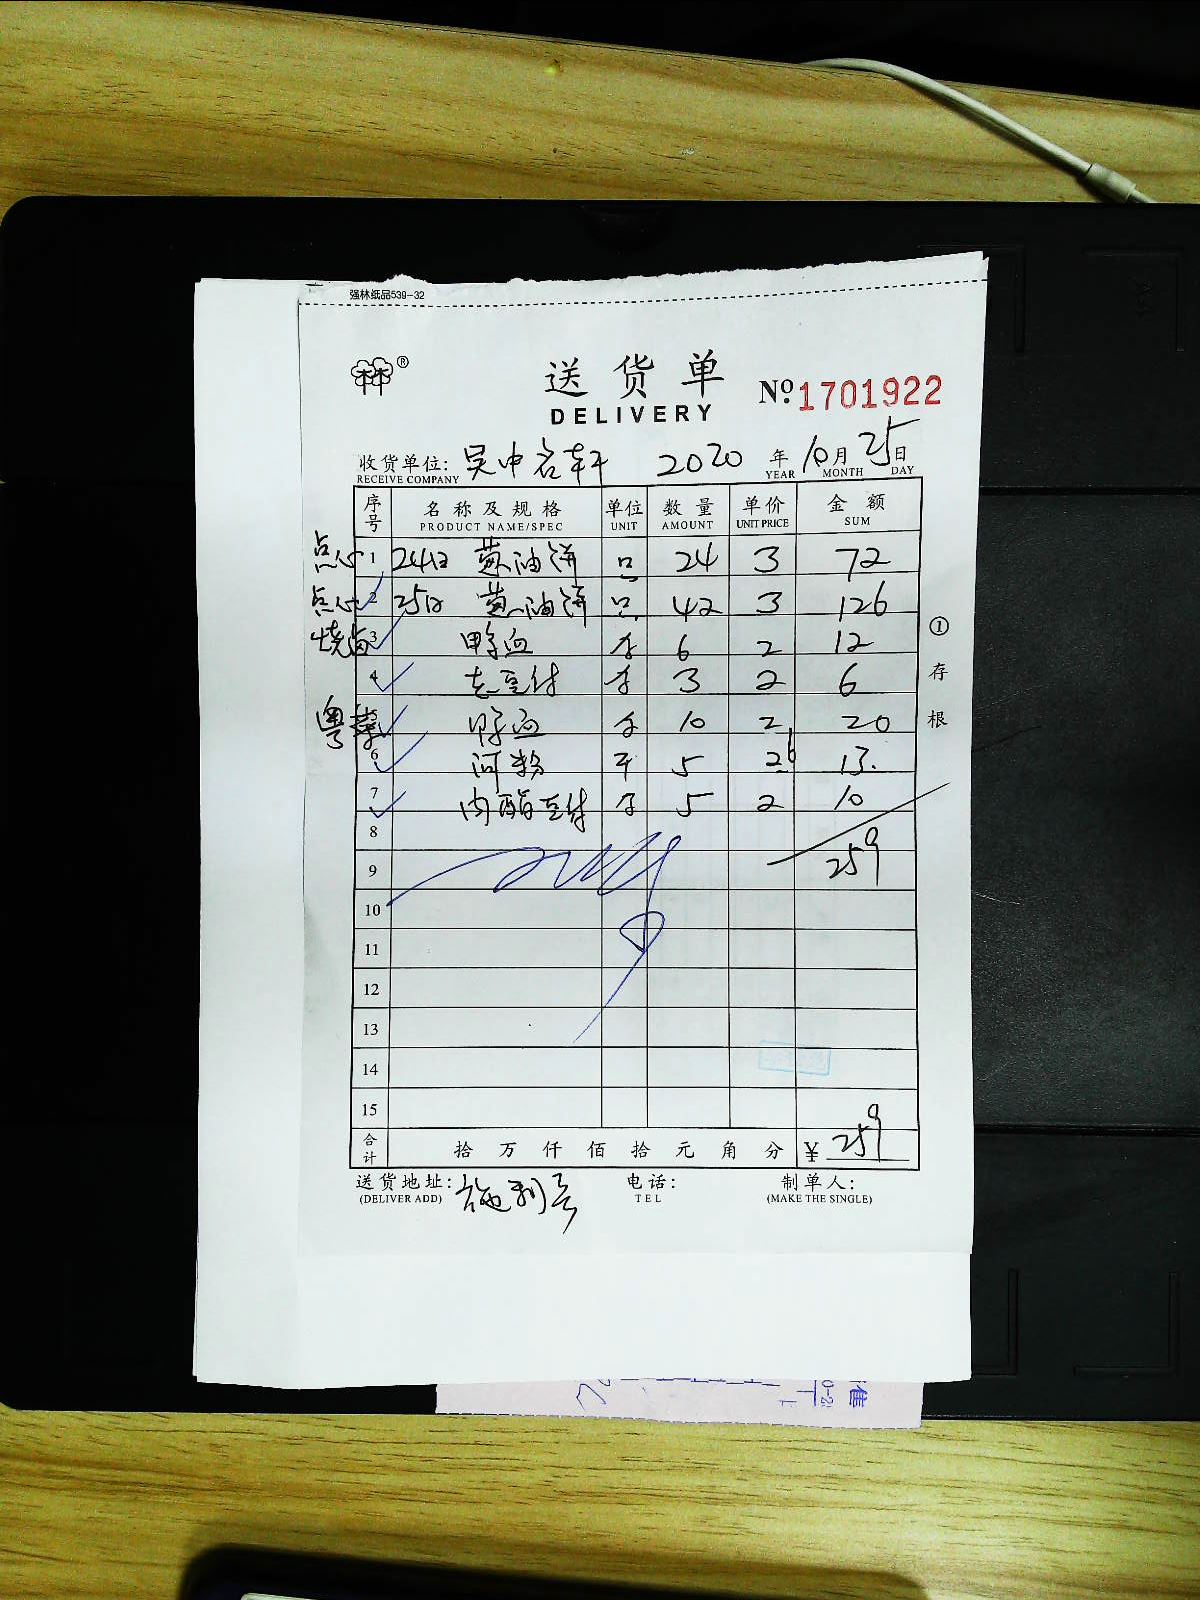 强林纸品539-32
林®
送货单
DELIVERY
№ 1701922
收货单位: 吴中名轩 2020 年 10 月 25 日
RECEIVE COMPANY YEAR MONTH DAY
序号 名称及规格 单位 数量 单价 金额
PRODUCT NAME/SPEC UNIT AMOUNT UNIT PRICE SUM
点心 1 24日 葱油饼 只 24 3 72
点心 2 25日 葱油饼 只 42 3 126
烧卤 3 鸭血 6 2 12
4 老豆付 3 2 6
粤菜 5 鸭血 10 2 20
6 河粉 斤 5 2.6 13.
7 内酯豆付 5 2 10
8
9 259
10
11
12
13
14
15
合计 拾 万 仟 佰 拾 元 角 分 ¥ 259
送货地址: 施利 电话: 制单人:
(DELIVER ADD) TEL (MAKE THE SINGLE)
①存根